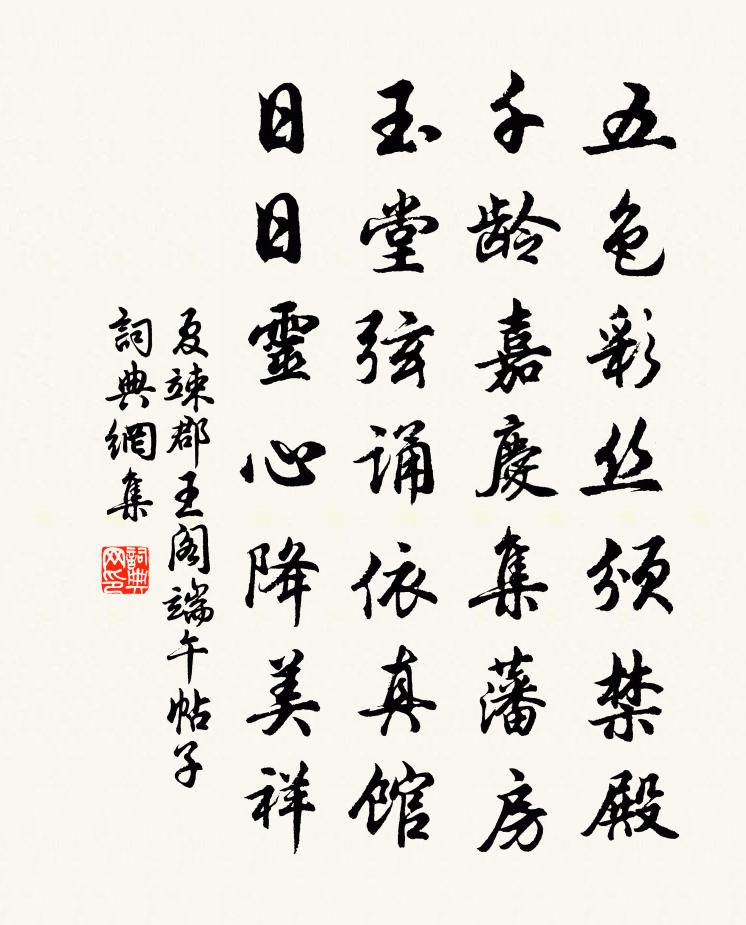 五色彩丝颁禁殿
千龄嘉慶集藩房
玉堂弦诵依真馆
日日靈心降美祥
夏竦郡王阁端午帖子
詞典網集
詞典网印